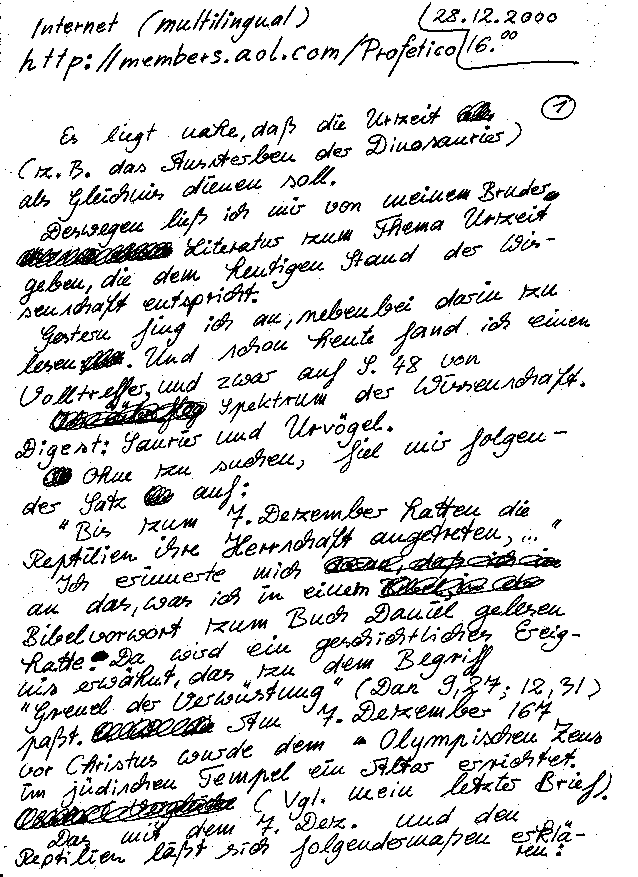 Internet (multilingual)
28.12.2000
http://members.aol.com/Profetico
16.00
1
Es liegt nahe, daß die Urzeit
(z.B. das Aussterben der Dinosaurier)
als Gleichnis dienen soll.
Deswegen ließ ich mir von meinem Bruder
Literatur zum Thema Urzeit
geben, die dem heutigen Stand der Wis-
senschaft entspricht.
Gestern fing ich an, nebenbei darin zu
lesen. Und schon heute fand ich einen
Volltreffer, und zwar auf S. 48 von
Spektrum der Wissenschaft.
Digest: Saurier und Urvögel.
Ohne zu suchen, fiel mir folgen-
der Satz auf:
"Bis zum 7. Dezember hatten die
Reptilien ihre Herrschaft angetreten, ..."
Ich erinnerte mich
an das, was ich in einem
Bibelvorwort zum Buch Daniel gelesen
hatte: Da wird ein geschichtliches Ereig-
nis erwähnt, das zu dem Begriff
"Greuel der Verwüstung" (Dan 9,27; 12,31)
paßt. Am 7. Dezember 167
vor Christus wurde dem Olympischen Zeus
im jüdischen Tempel ein Altar errichtet.
(Vgl. mein letzter Brief).
Das mit dem 7. Dez. und den
Reptilien läßt sich folgendermaßen erklä-
ren: